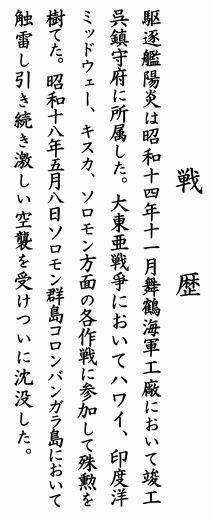 戦歴
駆逐艦陽炎は昭和十四年十一月舞鶴海軍工廠において竣工
呉鎮守府に所属した。大東亜戦争においてハワイ、印度洋
ミッドウェー、キスカ、ソロモン方面の各作戦に参加して殊勲を
樹てた。昭和十八年五月八日ソロモン群島コロンバンガラ島において
触雷し引き続き激しい空襲を受けついに沈没した。